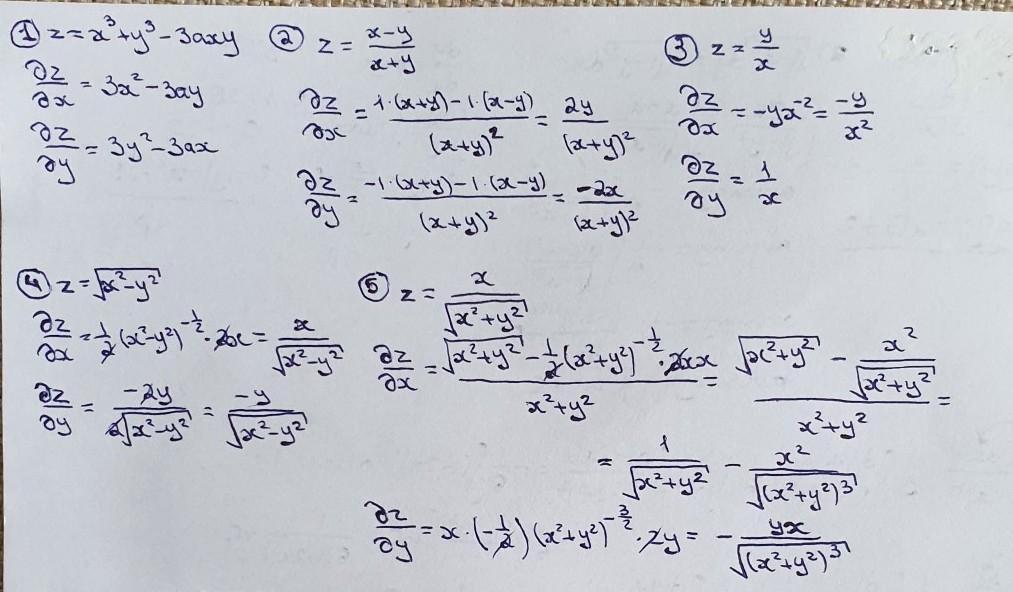 ① z = x³ + y³ - 3axy
∂z/∂x = 3x² - 3ay
∂z/∂y = 3y² - 3ax
② z = (x-y)/(x+y)
∂z/∂x = (1·(x+y) - 1·(x-y))/(x+y)² = 2y/(x+y)²
∂z/∂y = (-1·(x+y) - 1·(x-y))/(x+y)² = -2x/(x+y)²
③ z = y/x
∂z/∂x = -yx⁻² = -y/x²
∂z/∂y = 1/x
④ z = √(x²-y²)
∂z/∂x = 1/2 (x²-y²)^(-1/2) · 2x = x/√(x²-y²)
∂z/∂y = -2y/(2√(x²-y²)) = -y/√(x²-y²)
⑤ z = x/√(x²+y²)
∂z/∂x = (√(x²+y²) - 1/2 (x²+y²)^(-1/2) · 2xx)/(x²+y²) = (√(x²+y²) - x²/√(x²+y²))/(x²+y²) =
= 1/√(x²+y²) - x²/√((x²+y²)³)
∂z/∂y = x · (-1/2) (x²+y²)^(-3/2) · 2y = - yx/√((x²+y²)³)